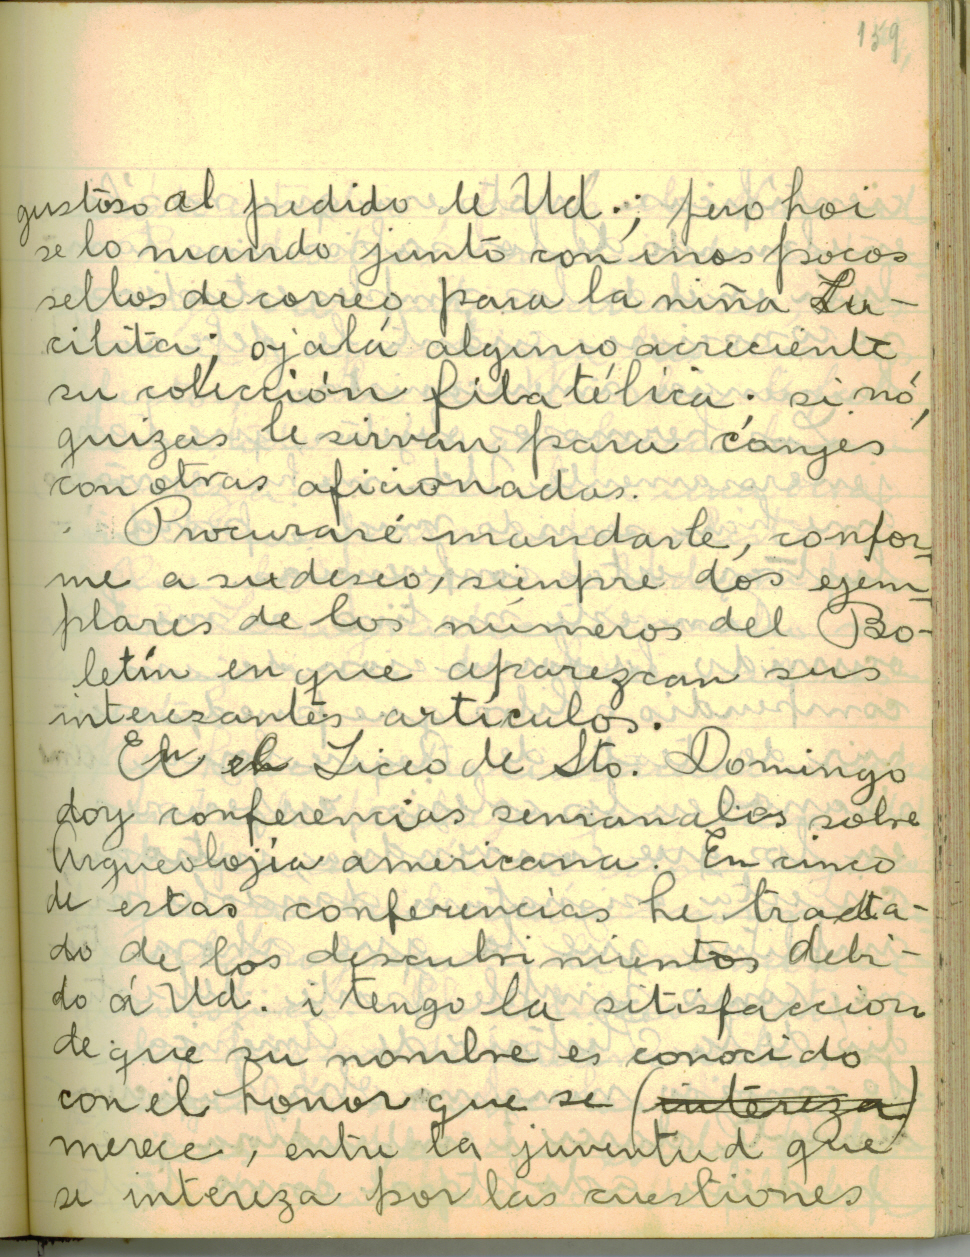 159,
gustoso al pedido de Ud.; pero hoi
se lo mando junto con unos pocos
sellos de correo para la niña Lu-
cilita; ojalá alguno acreciente
su colección filatélica; si nó,
quizas le sirvan para canjes
con otras aficionadas.
Procuraré mandarle, confor-
me a su deseo, sienpre dos ejem-
plares de los números del Bo-
letín en que aparezcan sus
interezantes artículos.
En el Liceo de Sto. Domingo
doy conferencias semanales sobre
Arqueolojía americana. En cinco
de estas conferencias he trata-
do de los descubrimientos debi-
do á Ud. i tengo la sitisfaccion
de que su nombre es conocido
con el honor que se (intereza)
merece, entre la juventud que
se intereza por las cuestiones